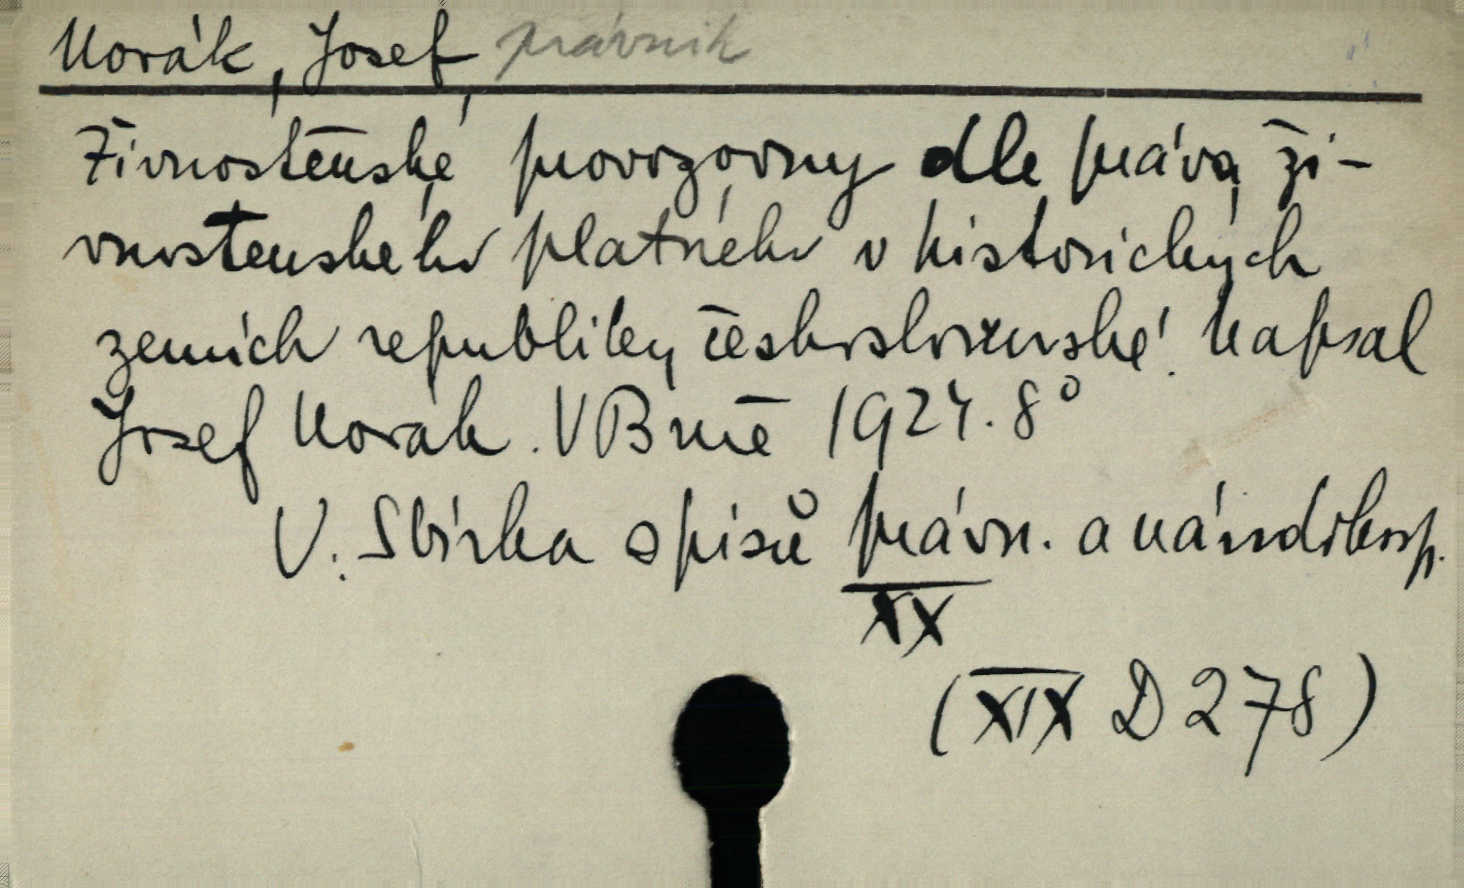 Novák, Josef, právník
Živnostenské provozovny dle práva ži-
vnostenského platného v historických
zemích republiky československé. Napsal
Josef Novák. V Brně 1924. 8°
V. Sbírka spisů právn. a národohosp.
XX
(XIX D 278)